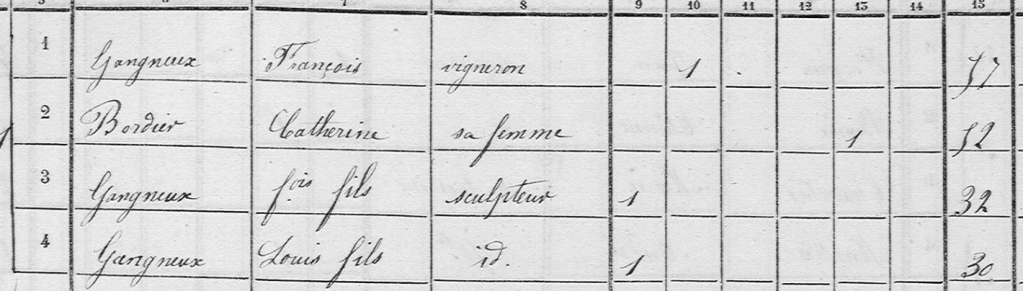 5 6 7 8 9 10 11 12 13 14 15
1 Gangneux François vigneron 1 57
2 Bordier Catherine sa femme 1 52
3 Gangneux fois fils sculpteur 1 32
4 Gangneux Louis fils id. 1 30